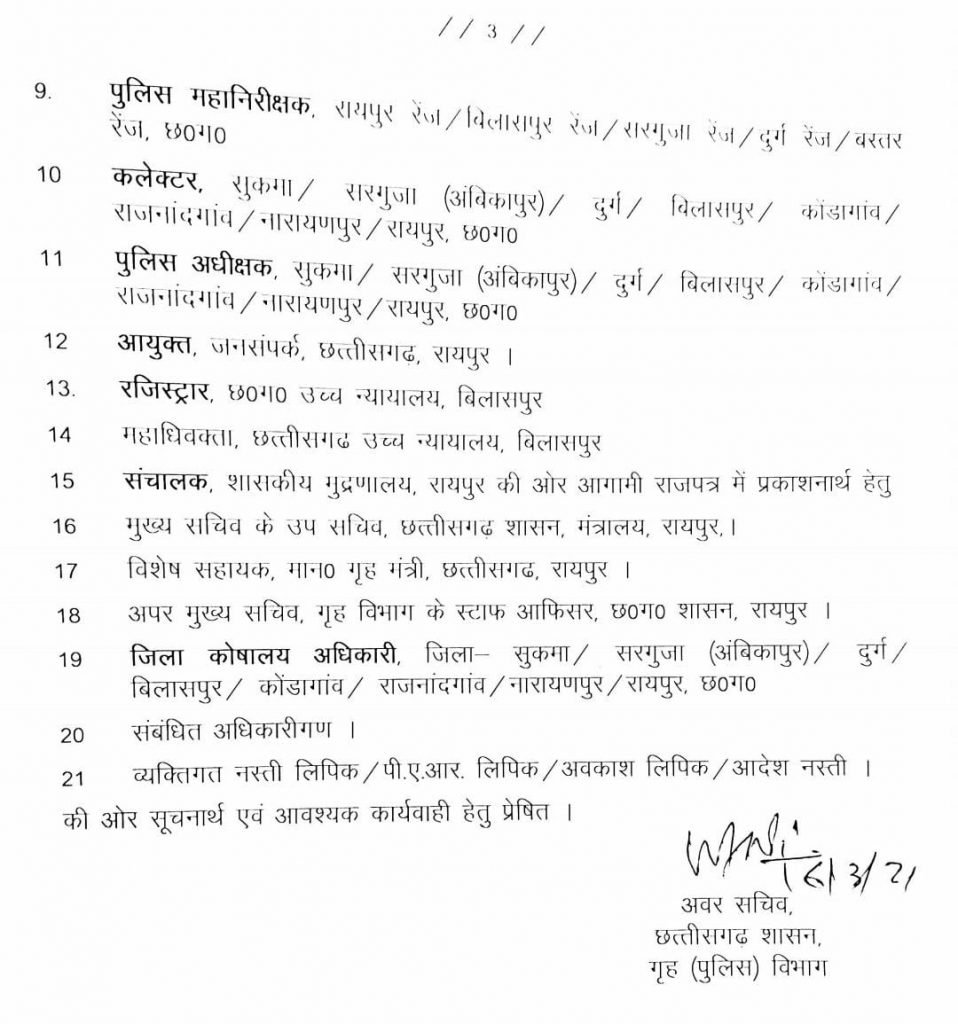 // 3 //
9. पुलिस महानिरीक्षक, रायपुर रेंज/बिलासपुर रेंज/सरगुजा रेंज/दुर्ग रेंज/बस्तर
रेंज, छ0ग0
10 कलेक्टर, सुकमा/ सरगुजा (अंबिकापुर)/ दुर्ग/ बिलासपुर/ कोंडागांव/
राजनांदगांव/नारायणपुर/रायपुर, छ0ग0
11 पुलिस अधीक्षक, सुकमा/ सरगुजा (अंबिकापुर)/ दुर्ग/ बिलासपुर/ कोंडागांव/
राजनांदगांव/नारायणपुर/रायपुर, छ0ग0
12 आयुक्त, जनसंपर्क, छत्तीसगढ़, रायपुर ।
13. रजिस्ट्रार, छ0ग0 उच्च न्यायालय, बिलासपुर
14 महाधिवक्ता, छत्तीसगढ उच्च न्यायालय, बिलासपुर
15 संचालक, शासकीय मुद्रणालय, रायपुर की ओर आगामी राजपत्र में प्रकाशनार्थ हेतु
16 मुख्य सचिव के उप सचिव, छत्तीसगढ़ शासन, मंत्रालय, रायपुर,।
17 विशेष सहायक, मान0 गृह मंत्री, छत्तीसगढ, रायपुर ।
18 अपर मुख्य सचिव, गृह विभाग के स्टाफ आफिसर, छ0ग0 शासन, रायपुर ।
19 जिला कोषालय अधिकारी, जिला– सुकमा/ सरगुजा (अंबिकापुर)/ दुर्ग/
बिलासपुर/ कोंडागांव/ राजनांदगांव/नारायणपुर/रायपुर, छ0ग0
20 संबंधित अधिकारीगण ।
21 व्यक्तिगत नस्ती लिपिक/पी.ए.आर. लिपिक/अवकाश लिपिक/आदेश नस्ती ।
की ओर सूचनार्थ एवं आवश्यक कार्यवाही हेतु प्रेषित ।
16/3/21
अवर सचिव,
छत्तीसगढ़ शासन,
गृह (पुलिस) विभाग